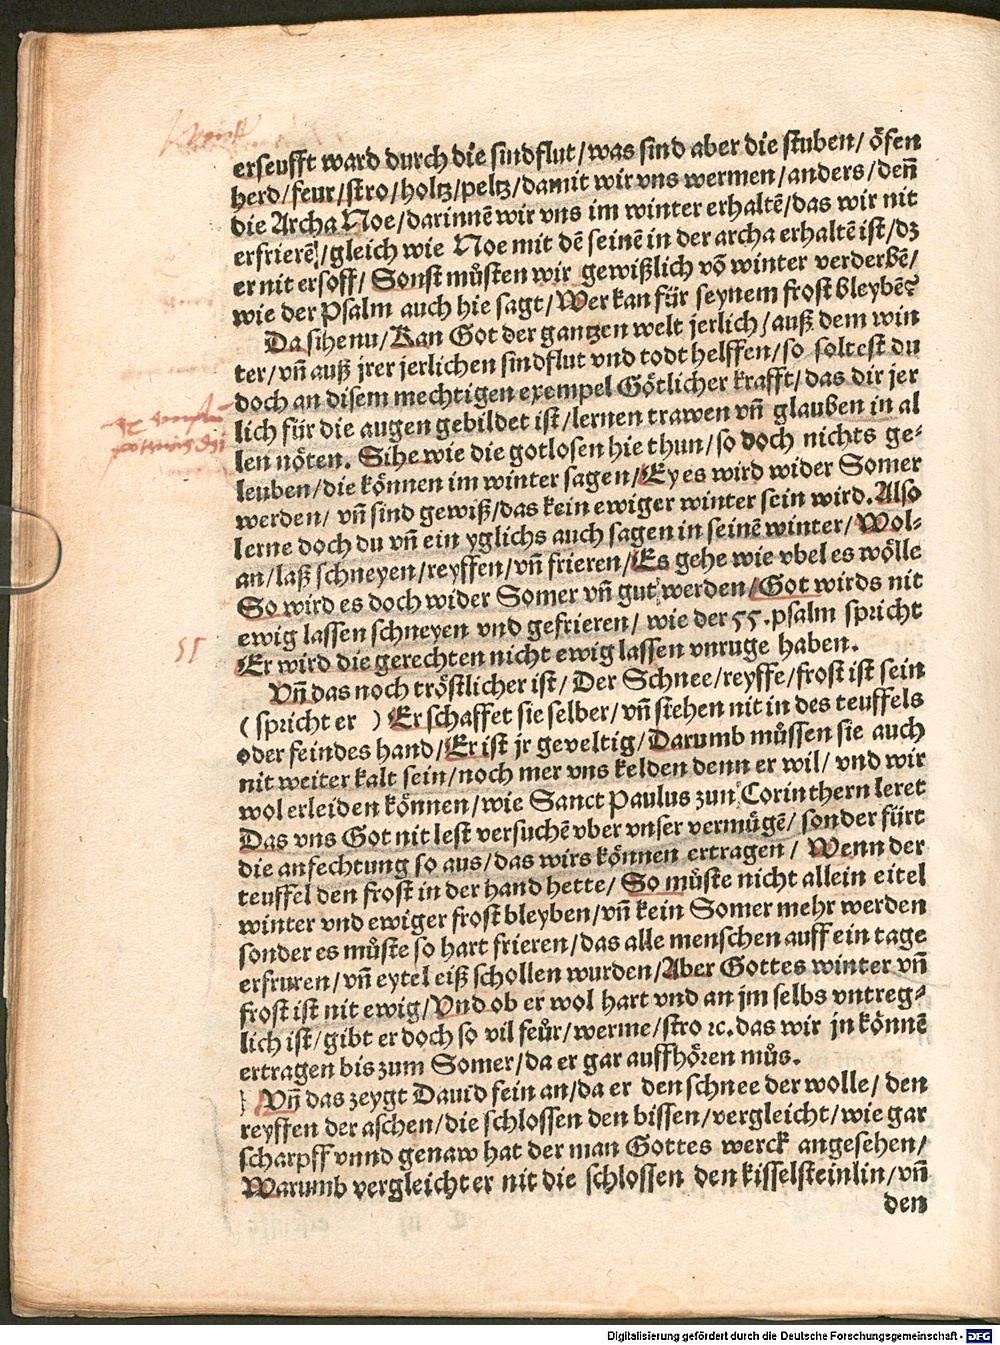 erseufft ward durch die sindflut/was sind aber die stuben/ öfen
herd/feur/stro/holtz/peltz/damit wir vns wermen/anders/den̄
die Archa Noe/darinnē wir vns im winter erhaltē/das wir nit
erfrierē/gleich wie Noe mit dē seinē in der archa erhaltē ist/dz
er nit ersoff/ Sonst můsten wir gewißlich vō winter verderbē/
wie der Psalm auch hie sagt/Wer kan für seynem frost bleybē?
Da sihe nu/Kan Got der gantzen welt jerlich/auß dem win
ter/vn̄ auß jrer jerlichen sindflut vnd todt helffen/so soltest du
doch an disem mechtigen exempel Götlicher krafft/das dir jer
lich für die augen gebildet ist/lernen trawen vn̄ glauben in al
len nöten. Sihe wie die gotlosen hie thun/so doch nichts ge-
leuben/die können im winter sagen/Ey es wird wider Somer
werden/ vn̄ sind gewiß/das kein ewiger winter sein wird. Also
lerne doch du vn̄ ein yglichs auch sagen in seinē winter/Wol-
an/laß schneyen/reyffen/vn̄ frieren/Es gehe wie vbel es wölle
So wird es doch wider Somer vn̄ gut werden/Got wirds nit
ewig lassen schneyen vnd gefrieren/ wie der 55. psalm spricht
55
Er wird die gerechten nicht ewig lassen vnruge haben.
Vn̄ das noch tröstlicher ist/ Der Schnee/reyffe/frost ist sein
(spricht er ) Er schaffet sie selber/vn̄ stehen nit in des teuffels
oder feindes hand/Er ist jr geveltig/Darumb můssen sie auch
nit weiter kalt sein/noch mer vns kelden denn er wil/ vnd wir
wol erleiden können/wie Sanct Paulus zun Corinthern leret
Das vns Got nit lest versuchē vber vnser vermügē/ sonder fürt
die anfechtung so aus/das wirs können ertragen/ Wenn der
teuffel den frost in der hand hette/So můste nicht allein eitel
winter vnd ewiger frost bleyben/vn̄ kein Somer mehr werden
sonder es můste so hart frieren/das alle menschen auff ein tage
erfruren/vn̄ eytel eiß schollen wurden/Aber Gottes winter vn̄
frost ist nit ewig/Vnd ob er wol hart vnd an jm selbs vntreg-
lich ist/gibt er doch so vil feůr/werme/stro ꝛc. das wir jn könnē
ertragen bis zum Somer/da er gar auffhören můs.
Vn̄ das zeygt Dauid fein an/da er den schnee der wolle/ den
reyffen der aschen/die schlossen den bissen/vergleicht/wie gar
scharpff vnnd genaw hat der man Gottes werck angesehen/
Warumb vergleicht er nit die schlossen den kisselsteinlin/vn̄
den
Digitalisierung gefördert durch die Deutsche Forschungsgemeinschaft - DFG